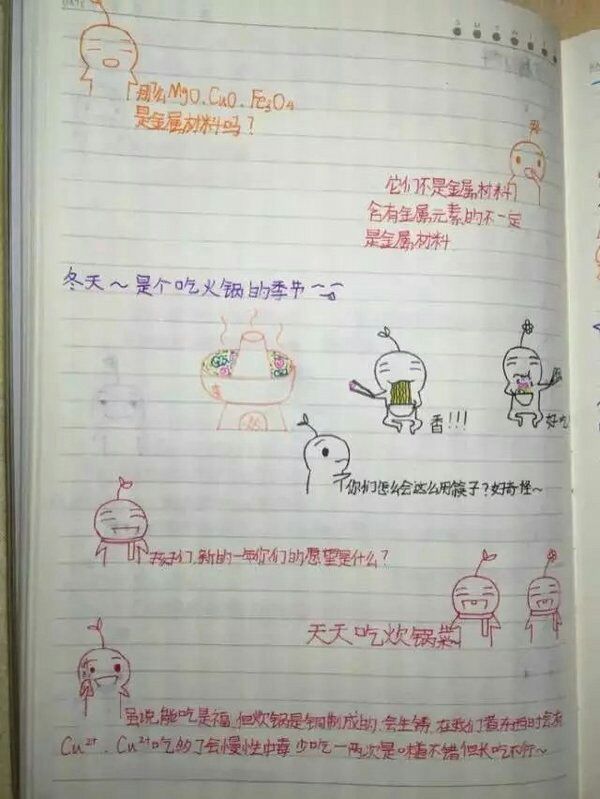 DATE
S M T W T F S
那么MgO.CuO.Fe3O4
是金属材料吗？
它们不是金属材料
含有金属元素的不一定
是金属材料
冬天～是个吃火锅的季节～
香!!!
好吃
你们怎么会这么用筷子?好奇怪～
孩子们.新的一年你们的愿望是什么?
天天吃炊锅菜
虽说能吃是福.但炊锅是铜制成的.会生锈.在我们煮东西时会有
Cu²⁺.Cu²⁺吃的了会慢性中毒 少吃一两次是味道不错但长吃不行～